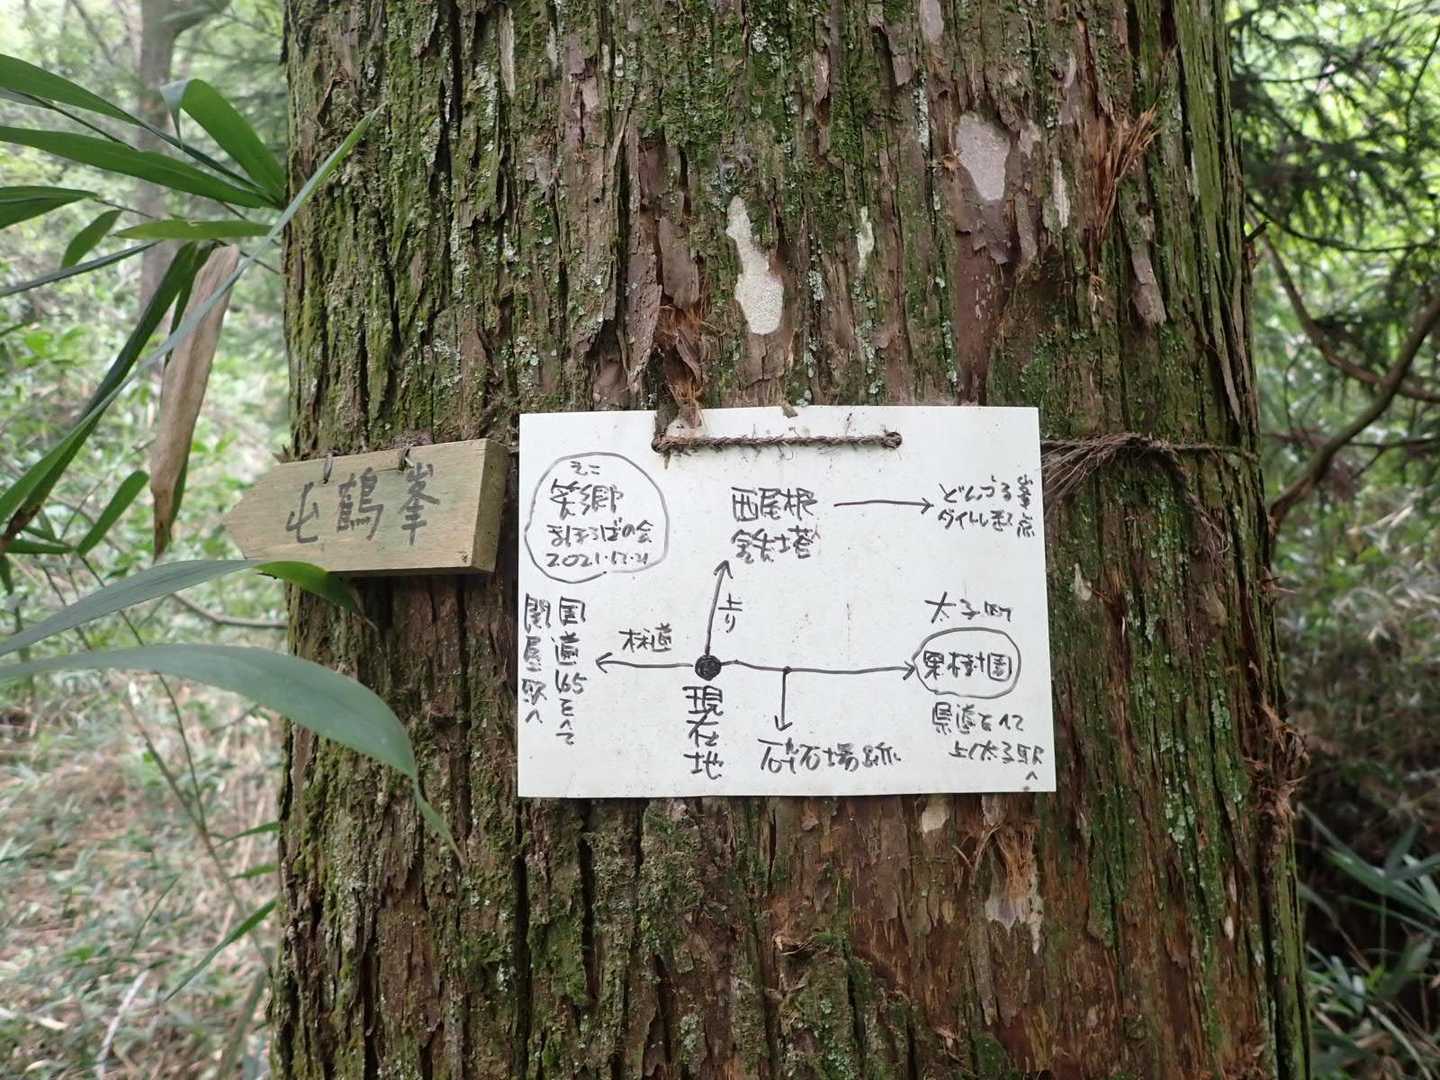 屯鶴峯
えこ
笑郷
まほろばの会
2021.12.21
西尾根
鉄塔
どんづる峯
ダイトレ
上り
林道
国道165をへて
関屋駅へ
現在地
砕石場跡
太子町
果樹園
県道をへて
上ノ太子駅へ